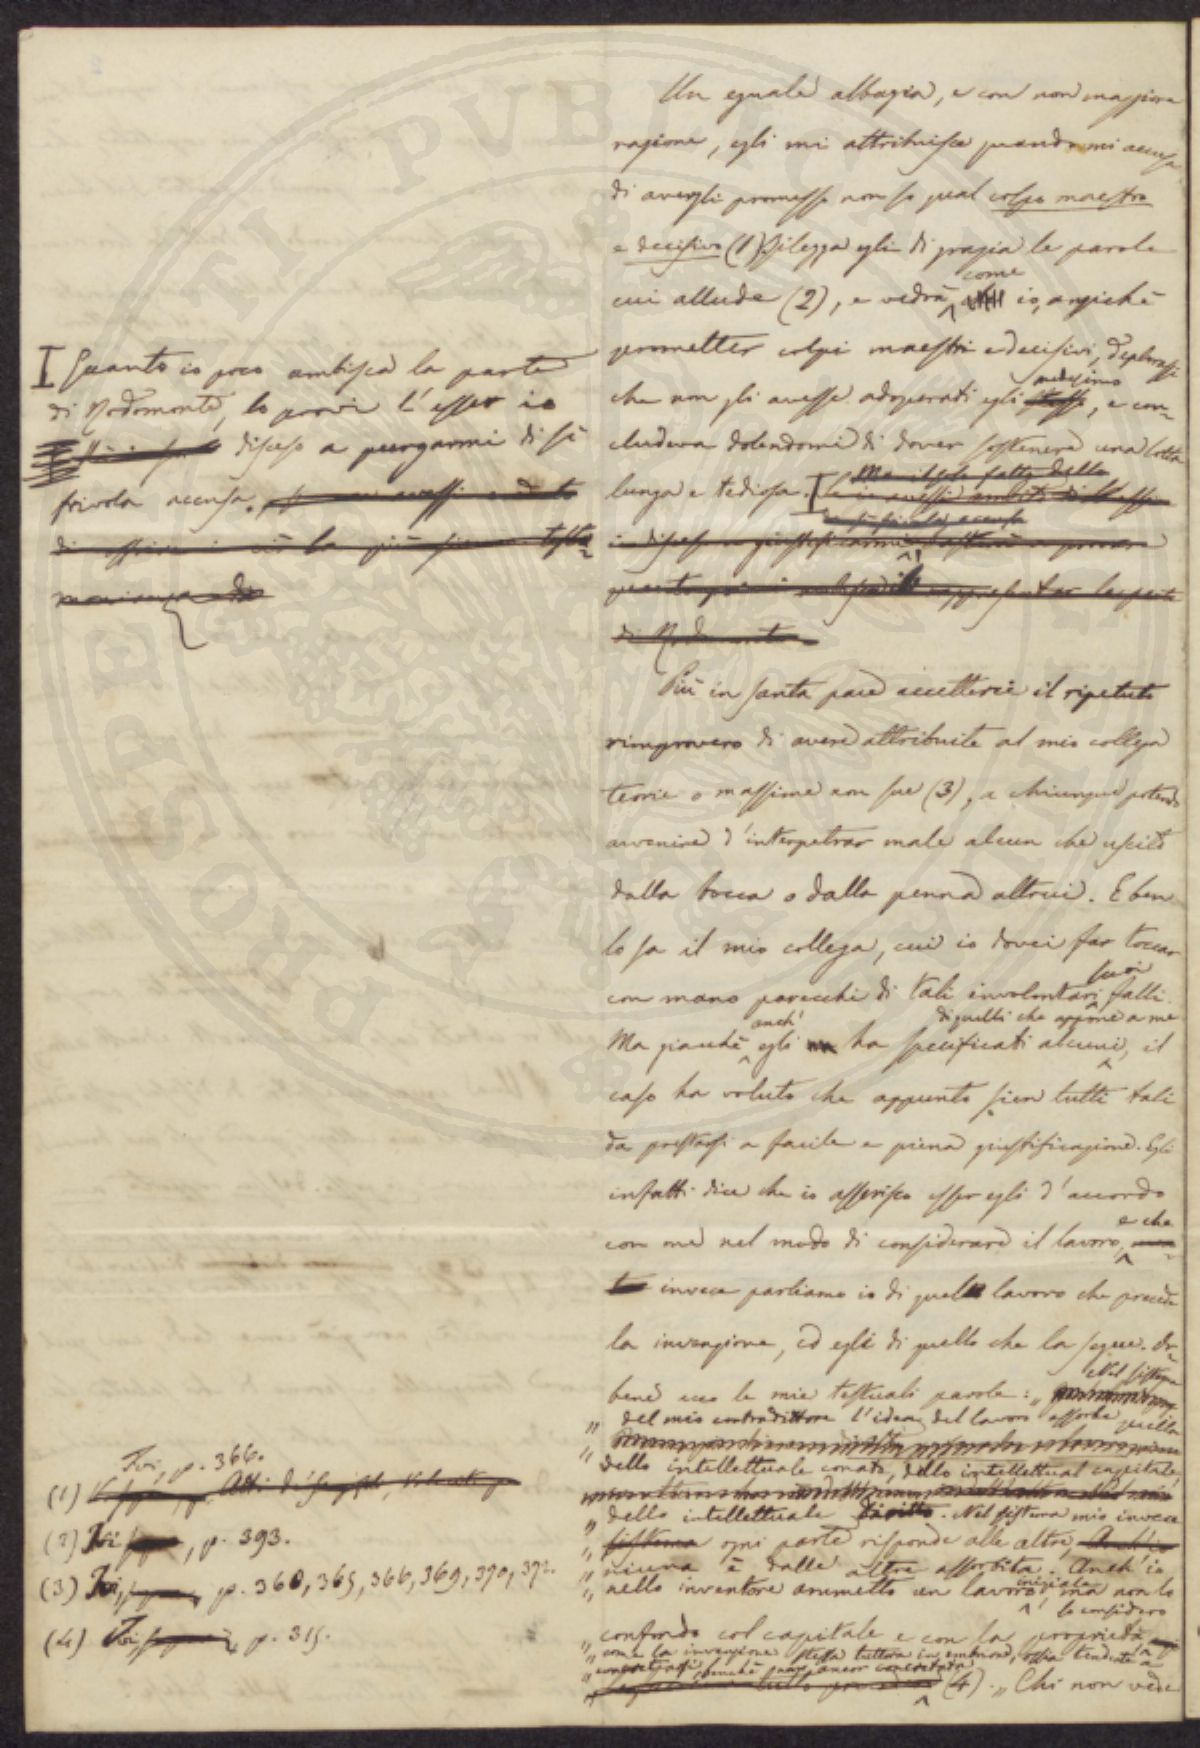 Un eguale albagia, e con non maggiore
ragione, egli mi attribuisce quando mi accusa
di avergli promesso non so qual colpo maestro
e decisivo (1). Rilegga egli di grazia le parole
cui allude (2), e vedrà come io, anzichè
prometter colpi maestri e decisivi, deplorassi
che non gli avesse adoperati egli medesimo, e con-
cludeva dolendomi di dover sostenere una lotta
lunga e tediosa.
Quanto io poco ambisca la parte
di Rodomonte, lo provi l'esser io
disceso a purgarmi di sì
frivola accusa.
Più in santa pace accetterei il ripetuto
rimprovero di avere attribuite al mio collega
teorie o massime non sue (3), a chiunque potendo
avvenire d'interpetrar male alcun che uscito
dalla bocca o dalla penna altrui. E ben
lo sa il mio collega, cui io dovei far toccar
con mano parecchi di tali involontari suoi falli.
Ma giacchè anch' egli ha specificati alcuni di quelli che appone a me, il
caso ha voluto che appunto sien tutti tali
da prestarsi a facile e piena giustificazione. Egli
infatti dice che io asserisco esser egli d'accordo
con me nel modo di considerare il lavoro, e che
invece parliamo io di quel lavoro che precede
la invenzione, ed egli di quello che la segue. Or-
bene ecco le mie testuali parole: „ Nel sistema
„ del mio contradittore l'idea del lavoro assorbe quella
„ dello intellettuale conato, dello intellettual capitale,
„ dello intellettuale. Nel sistema mio invece
„ ogni parte risponde alle altre,
„ niuna è dalle altre assorbita. Anch' io
„ nello inventore ammetto un lavoro iniziale, ma non lo
„ confondo col capitale e con la proprietà lo considero
„ come la invenzione stessa tuttora in embrione, ossia tendente a
„ concretarsi, (4). „ Chi non vede
(1) Ivi, p. 366.
(2) Ivi, p. 393.
(3) Ivi, p. 360, 365, 366, 369, 370, 372.
(4) Ivi, p. 315.